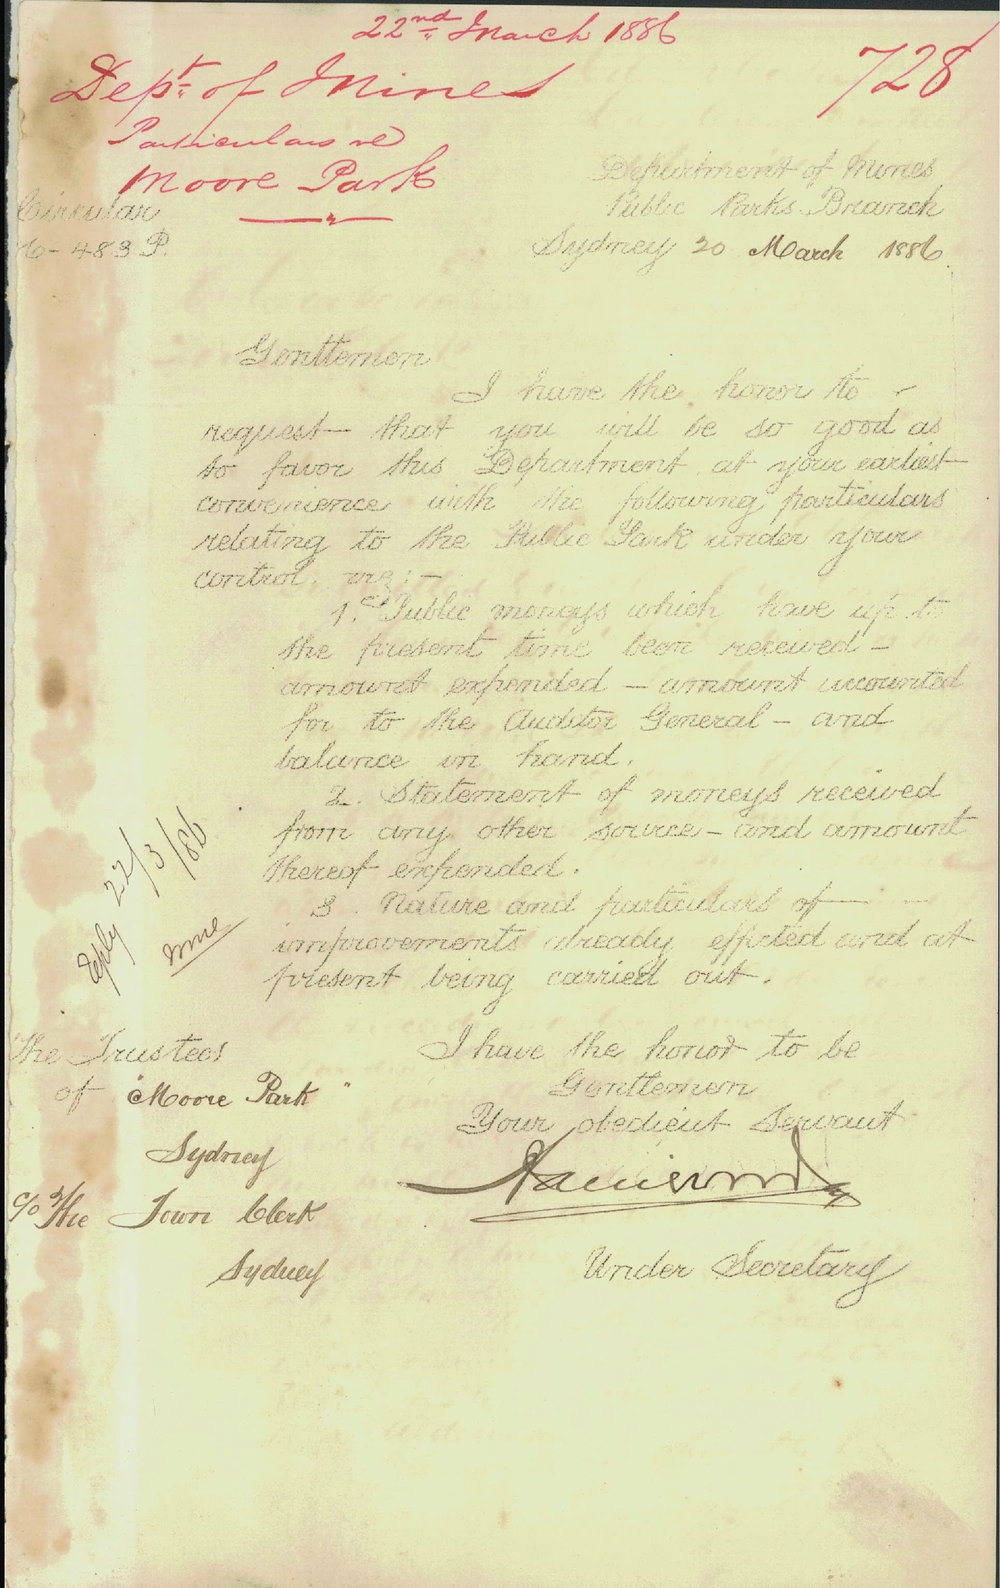 22nd March 1886
728
Dept. of Mines
Particulars re
Moore Park
Circular
6-483 P.
Department of Mines
Public Parks Branch
Sydney 20 March 1886
Gentlemen
I have the honor to
request that you will be so good as
to favor this Department at your earliest
convenience with the following particulars
relating to the Public Park under your
control. viz:-
1. Public moneys which have up to
the present time been received -
amount expended - amount accounted
for to the Auditor General - and
balance in hand.
2. Statement of moneys received
from any other source - and amount
thereof expended.
3. Nature and particulars of
improvements already effected and at
present being carried out.
Reply 22/3/86
I have the honor to be
Gentlemen
Your obedient Servant
Under Secretary
The Trustees
of "Moore Park"
Sydney
c/o The Town Clerk
Sydney